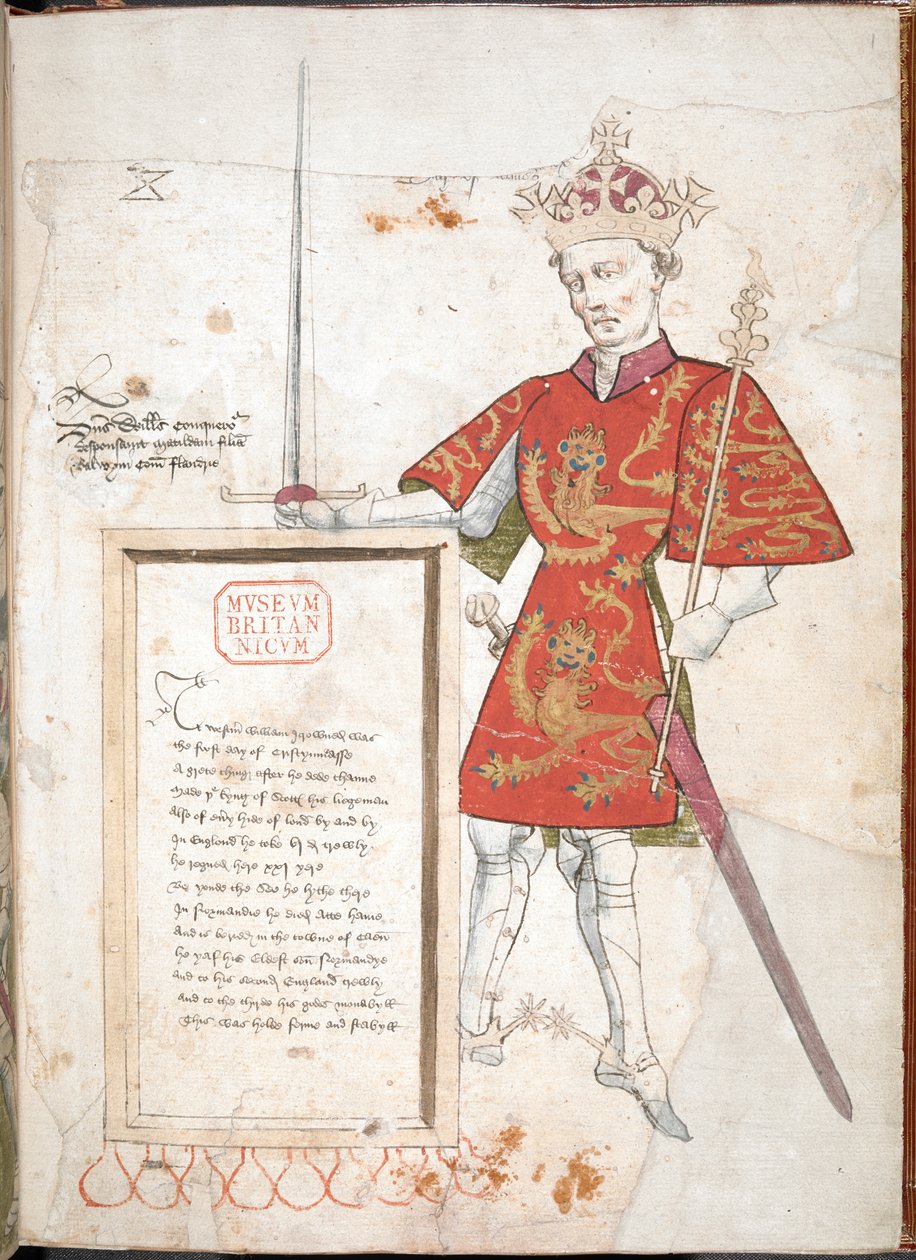 1
Dns Wills Conqueror
desponsavit Matildam filia
Balwyni Com flandrie
MVSEVM
BRITAN
NICVM
At westm William Icrowned was
the first day of Cristynmasse
A grete thing after he dede thanne
Made þe kyng of Scott his liegeman
Also of eu'y hide of lond by and by
In England he toke vj d trewly
he regned here xxj yere
Be yonde the See he lythe there
In Normandie he died atte
and is beried in the towne of Caen
he yaf his Eldest son Normandye
and to his second England trewly
and to the thirde his godes moeabyll
This was holde ferme and stabyll